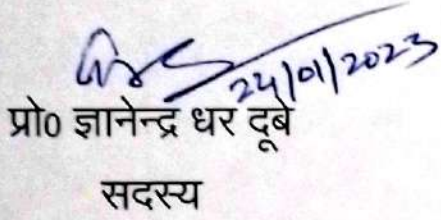 24/01/2023
प्रो0 ज्ञानेन्द्र धर दूबे
सदस्य